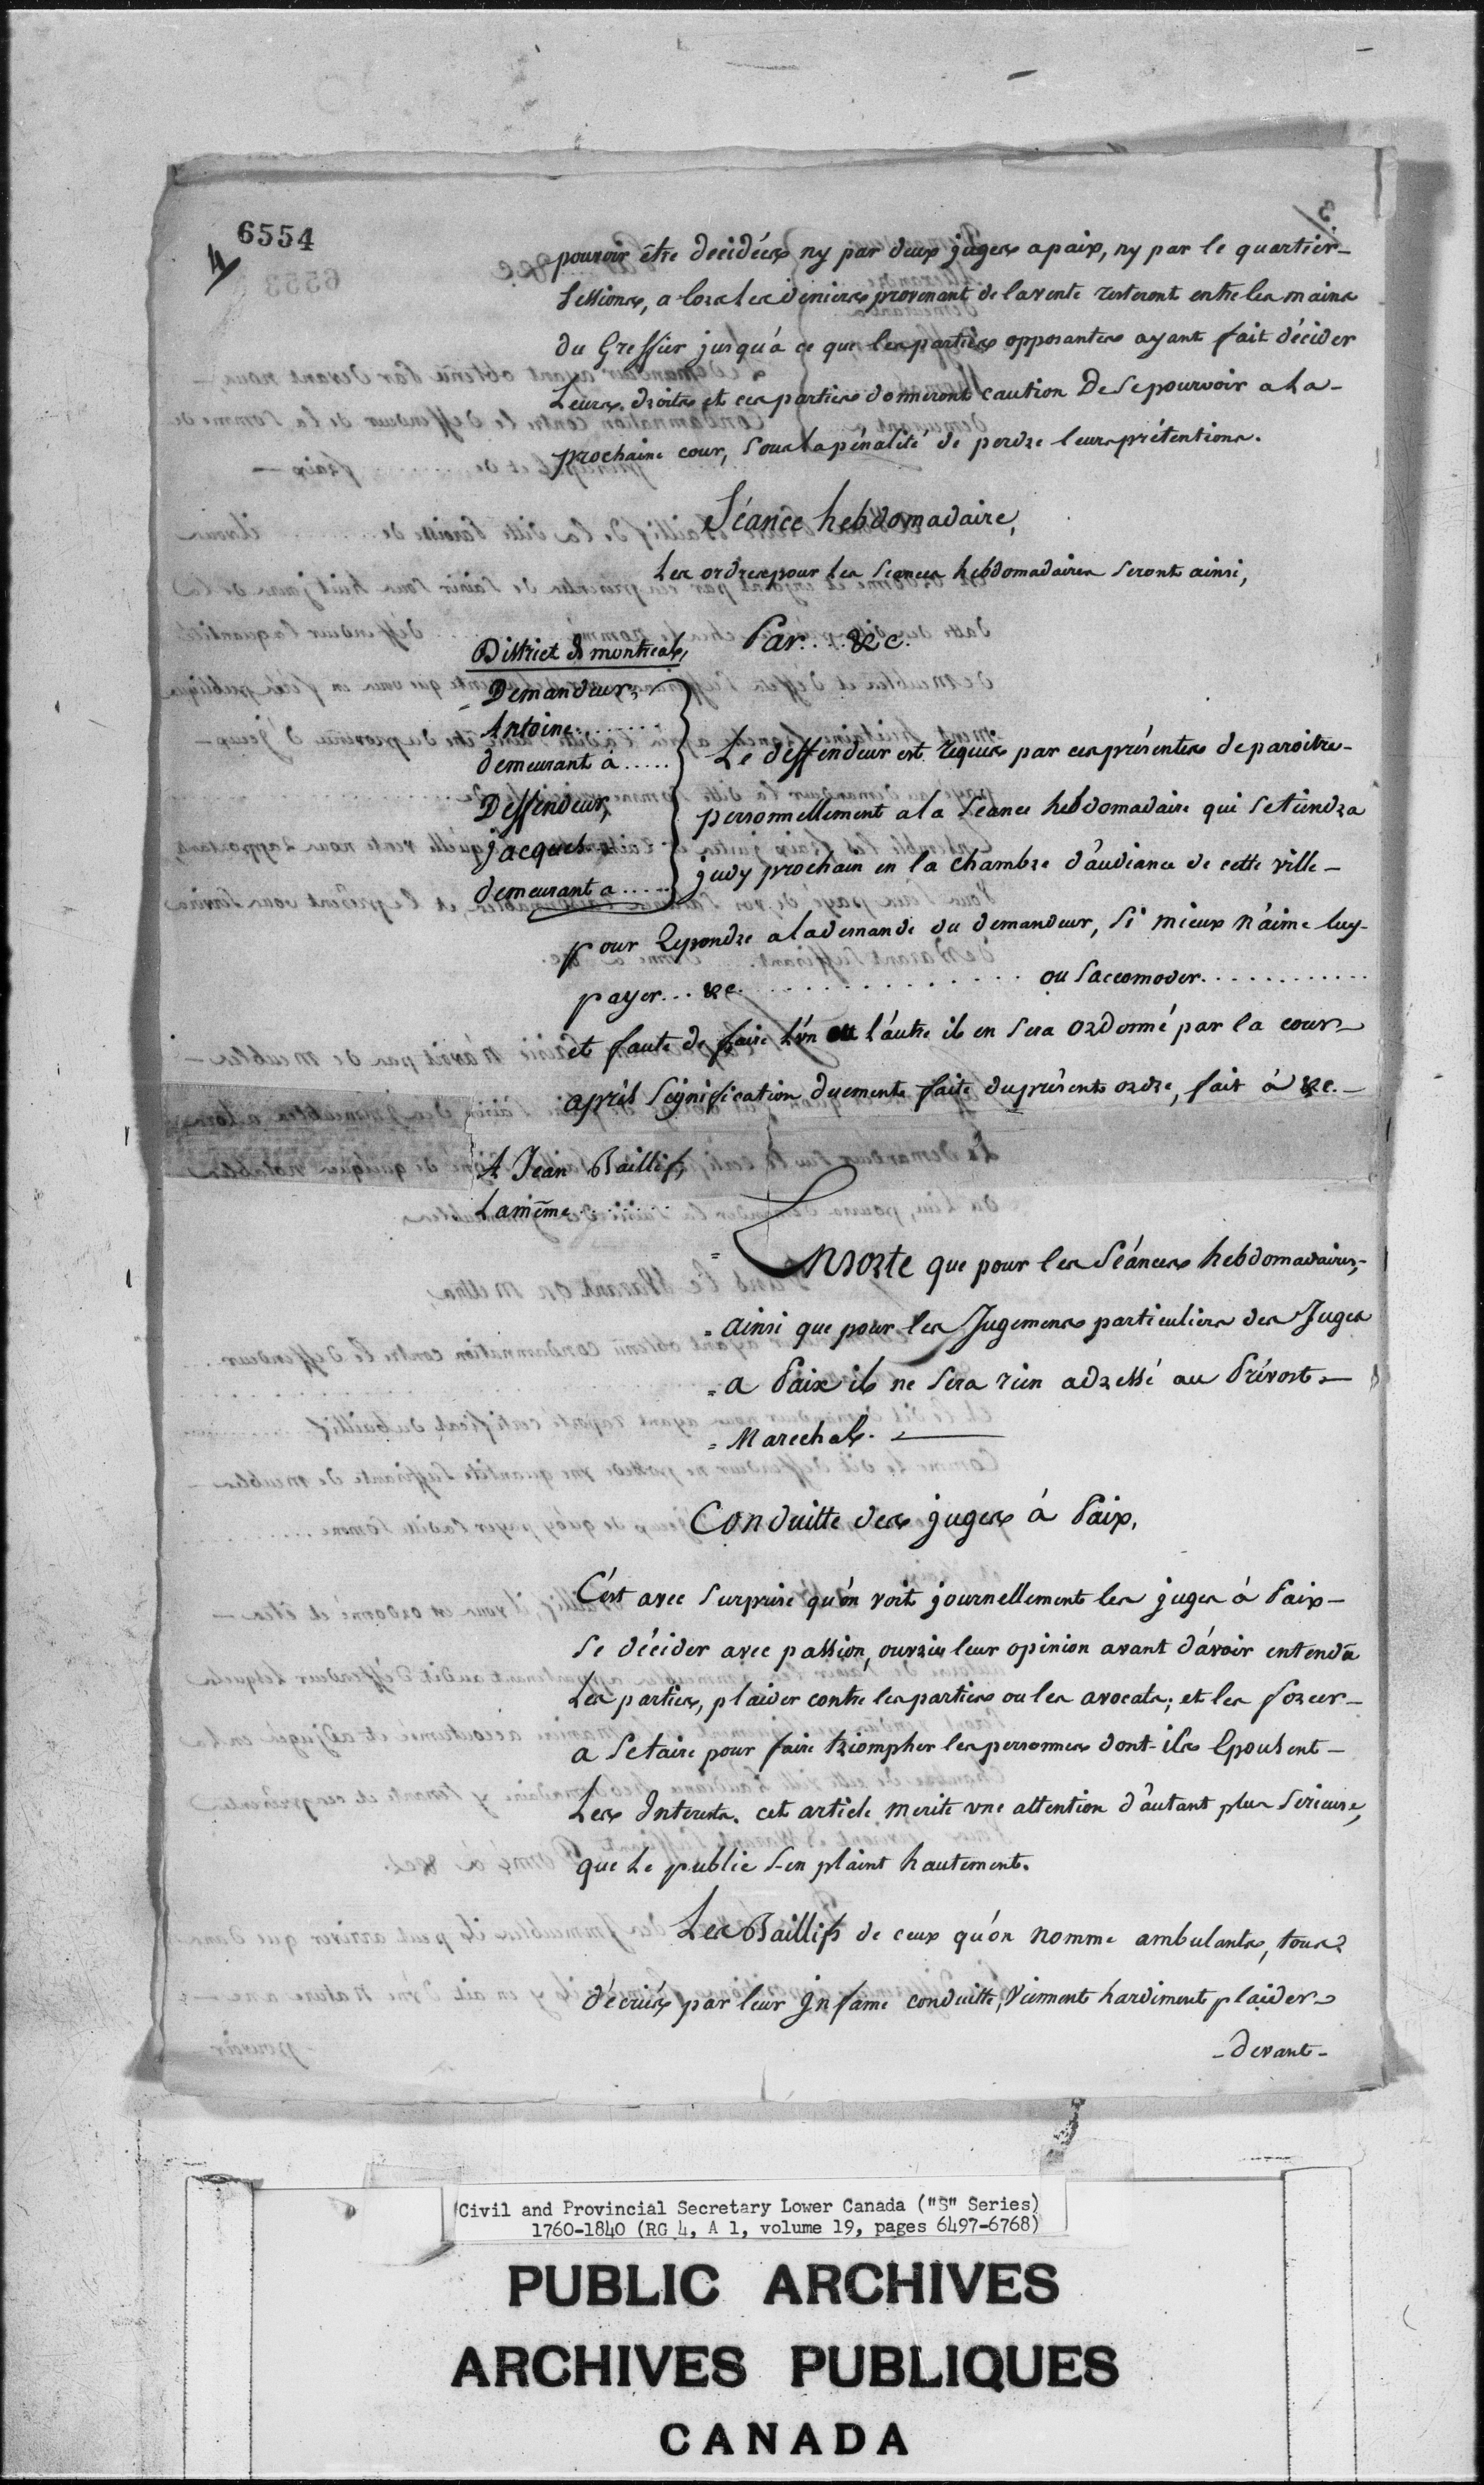 6554
4
pouvoir être decidées ny par deux juges a paix, ny par le quartier-
sessions, a lors les deniers provenant de la vente resteront entre les mains
du Greffier jusqu'á ce que les parties opposantes ayant fait décider
Leurs droits et ces parties donneront caution De se pourvoir a La-
prochaine cour, sous la pénalité de perdre leurs prétentions.
Séance hebdomadaire,
Les ordres pour Les seances hebdomadaires seront ainsi,
Par.... &c.
District de montreal,
Demandeur,
Antoine........
demeurant á.....
Deffendeur,
jacques
demeurant a.....
Le deffendeur est requis par ces présentes de paroitre-
personnellement a la seance hebdomadaire qui se tiendra
judy prochain en la chambre d'audiance de cette ville-
pour Repondre a la demande du demandeur, si mieux n'aime luy-
payer... &c. ............... ou saccomoder............
et faute de faire l'vn ou l'autre il en sera ordonné par la cour-
aprés signification duement faite du présent ordre, fait á &c.-
A Jean Baillif,
La même........
= Ensorte que pour les séances hebdomadaires,-
= ainsi que pour les Jugemens particuliers des Juges
= a Paix il ne sera rien adressé au Prévost-
= Marechal.
Conduitte des juges á Paix,
C'est avec surprise qu'on voit journellement les juges á Paix-
se décider avec passion, ouvrir leur opinion avant d'avoir entendu
Les parties, plaider contre les parties ou les avocats; et les forcer-
a se taire pour faire triompher les personnes dont-ils Epousent-
Les Interests. cet article merite vne attention d'autant plus serieuse,
que Le public s-en plaint hautement.
Les Baillifs de ceux qu'on nomme ambulants, tous
décriés par leur Infame conduitte, viennent hardiment plaider-
-devant-
Civil and Provincial Secretary Lower Canada ("S" Series)
1760-1840 (RG 4, A 1, volume 19, pages 6497-6768)
PUBLIC ARCHIVES
ARCHIVES PUBLIQUES
CANADA